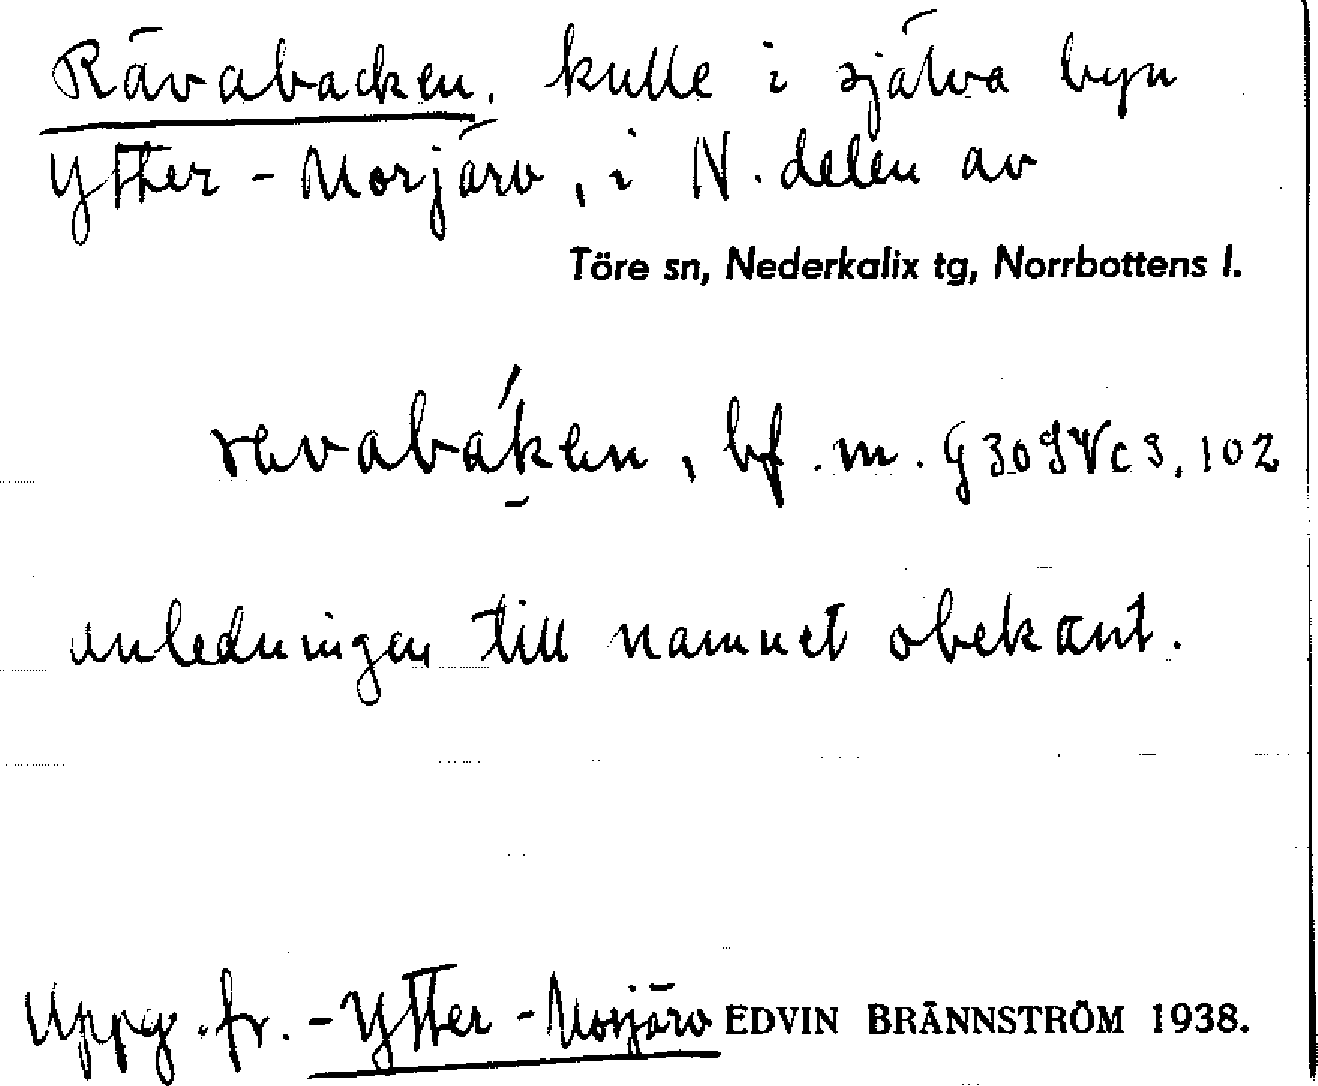 Rävabacken, kulle i själva byn
Ytter-Morjärv, i N. delen av
Töre sn, Nederkalix tg, Norrbottens l.
revabák̠en, bf. m.
anledningen till namnet obekant.
Uppg. fr. - Ytter-Morjärv EDVIN BRÄNNSTRÖM 1938.